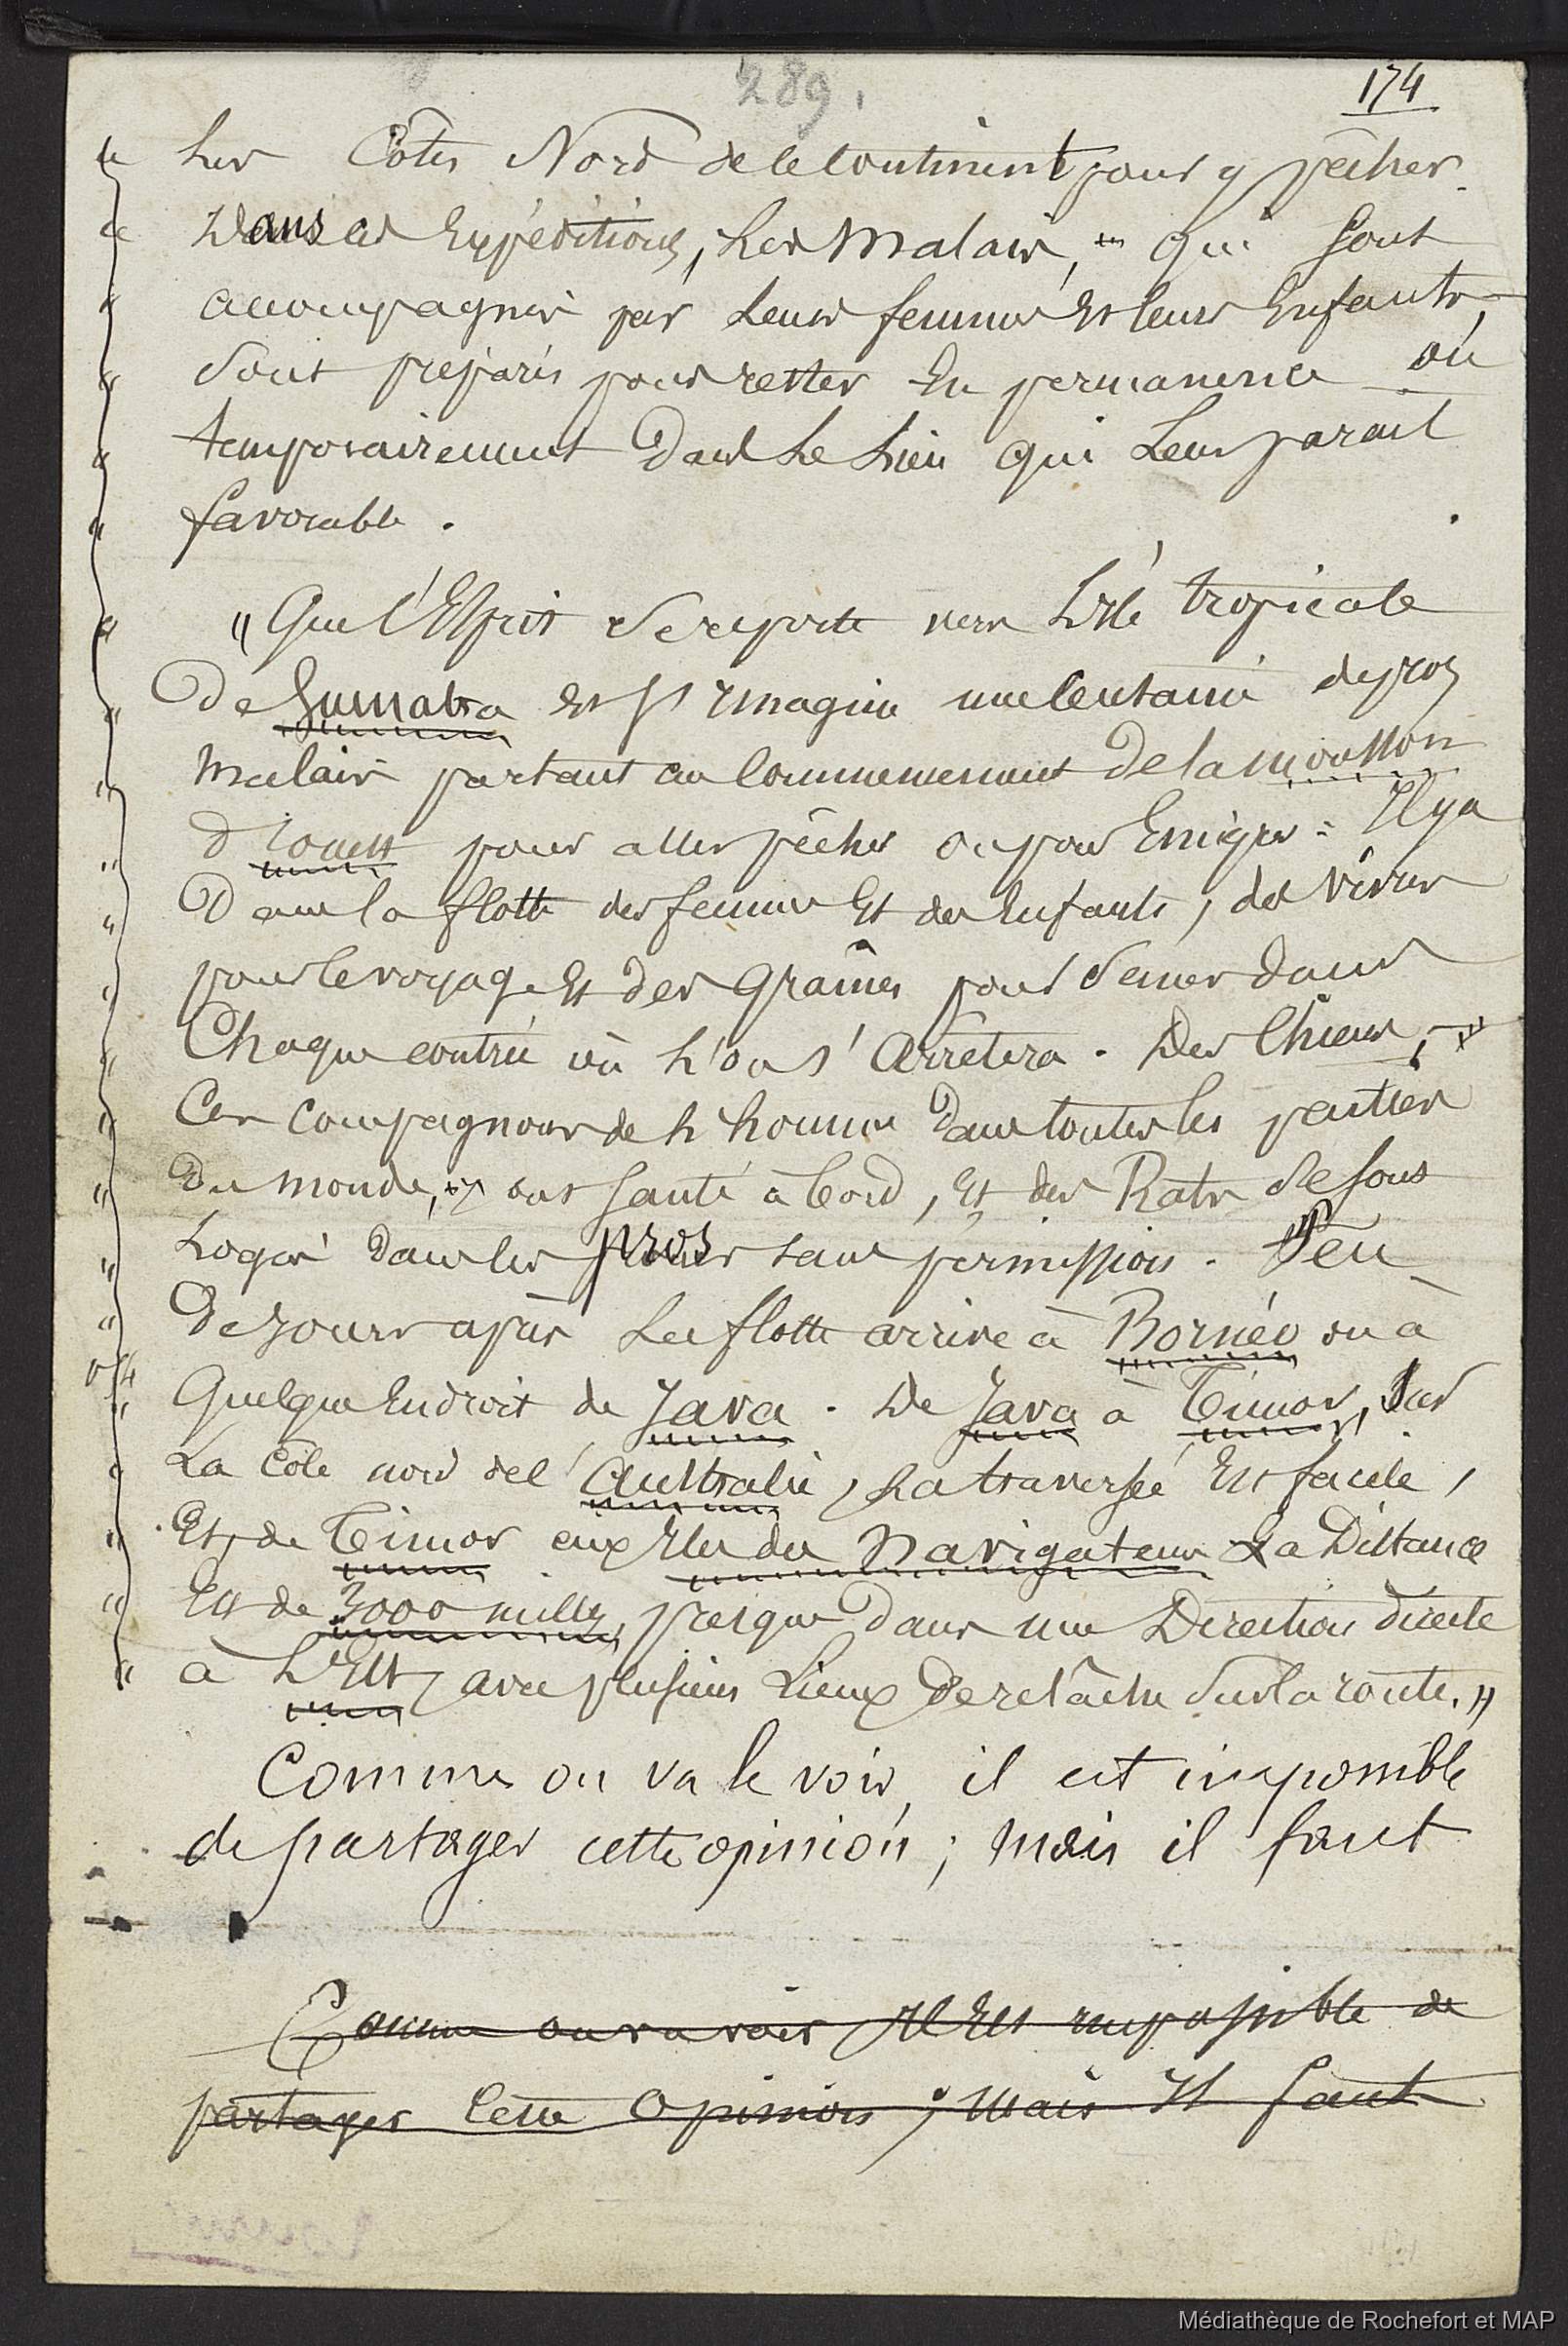 289.
174
les Côtes Nord de le continent pour y pêcher.
Dans ces Expéditions, les Malais, qui sont
accompagnés par leurs femmes Et leurs Enfants,
sont préparés pour rester En permanence où
temporairement dans le lieu qui leur parait
favorable.
"Que l'Esprit se reporte vers L'Ile tropicale
De Sumatra Et s'imagine une centaine de pros
Malais partant au Commencement De la mousson
d'ouest pour aller pêcher ou pour Emigrer : Il y a
Dans la flotte des femmes Et des Enfants, des vivres
pour le voyage Et des graînes pour semer dans
Chaque contrée où l'on s'Arrêtera. Des Chiens,
Ces compagnons de l'homme Dans toutes les parties
Du monde, ont sauté à bord, Et des Rats se sont
Logés dans les pros sans permission. Peu
De jours après La flotte arrive à Bornéo ou à
Quelque Endroit de Java. De Java à Timor, Sur
La Côte nord de l'Australie, la traversée Est facile,
Et, de Timor aux Iles des Navigateurs La Distance
Est de 3000 milles, presque Dans une Direction directe
à L'Est, avec plusieurs Lieux De relâche Sur la route."
Comme on va le voir, il est impossible
de partager cette opinion ; mais il faut
Comme on va voir Il Est impossible de
partager Cette Opinion ; Mais Il faut
Médiathèque de Rochefort et MAP